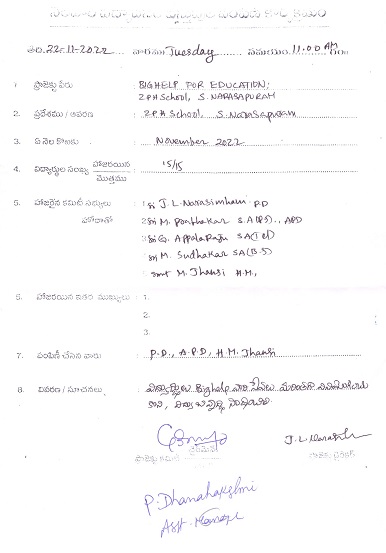 తేది. 22-11-2022 వారము Tuesday సమయం. 11.00 AM గం॥
1. ప్రాజెక్టు పేరు : BIGHELP FOR EDUCATION;
Z.P.H School, S. NARASAPURAM
2. ప్రదేశము / ఆవరణ : Z.P.H School, S. Narasapuram
3. ఏ నెల కొఱకు : November 2022
4. విద్యార్థుల సంఖ్య హాజరయిన / మొత్తము : 15/15
5. హాజరైన కమిటీ సభ్యులు : 1. Sri J. L. Narasimham P.D
హోదాతో 2. Sri M. Prabhakar S.A (P.S), APD
3. Sri G. Appala Raju SA (Tel)
Sri M. Sudhakar SA (B.S)
Smt M. Jhansi H.M.,
6. హాజరయిన ఇతర ముఖ్యులు : 1.
2.
3.
7. పంపిణీ చేసిన వారు : P.D., A.P.D, H.M. Jhansi
8. వివరణ / సూచనలు : విద్యార్థులు Bighelp వారి సేవలు
ప్రాజెక్టు కమిటీ ఛైర్మన్
J. L. Narasimha
P. Dhanalakshmi
Asst. Manager